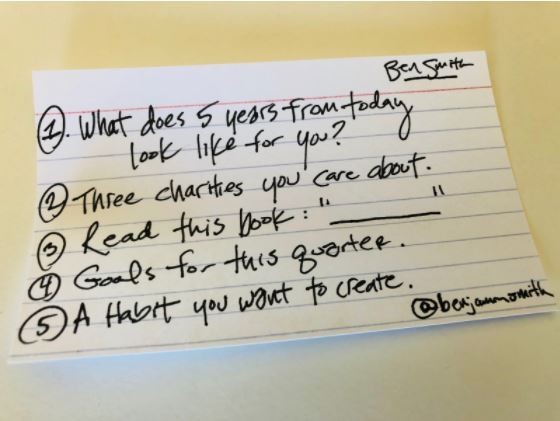 Ben Smith
①. What does 5 years from today
look like for you?
② Three charities you care about.
③ Read this book: "________"
④ Goals for this quarter.
⑤ A Habit you want to create.